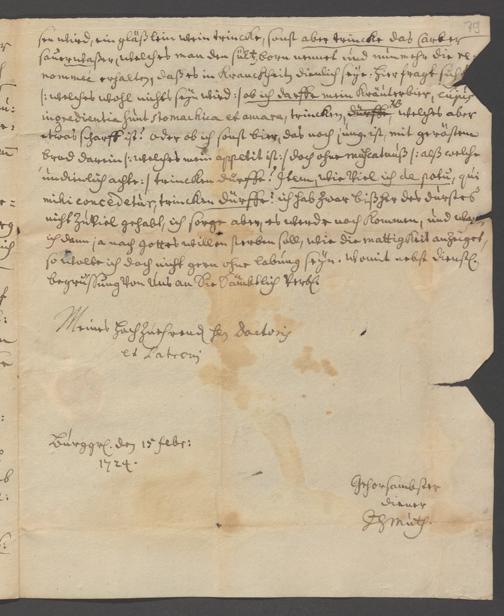 79
sen wird, ein gläßlein wein trincke, sonst aber trincke das
sauerwaßer, welches man den born nennet und nunmehr die re-
nommee erhalten, daß es in Kranckheiten dienlich seye. Hier fragt sichs
/: welches wohl nichts seyn wird :/ ob ich darffe mein Kräuterbier, cujus
ingredientia sunt stomachica et amara, trincken, welches aber
etwas scharff ist? oder ob ich sonst bier, das noch jung ist, mit geröstem
brod darein /: welches mein appetit ist :/ doch ohne mußcatnuß /: alß welche
undienlich achte :/ trincken dürffe? Item, wie viel ich de potu, qui
mihi concedetur, trincken dürffe? ich hab zwar bißher des durstes
nicht zuviel gehabt, ich sorge aber, es werde noch kommen, und
ich dann ja nach Gottes willen sterben soll, wie die mattigkeit anzeiget,
so wolte ich doch nicht gern ohne labung seyn. womit nebst dienstl.
begrüssung von uns an Sie sämbtlich verbl.
Meines Hochzuehrend Hn Doctoris
et Patroni
Burggr. den 15 febr:
1724.
Gehorsambster
diener